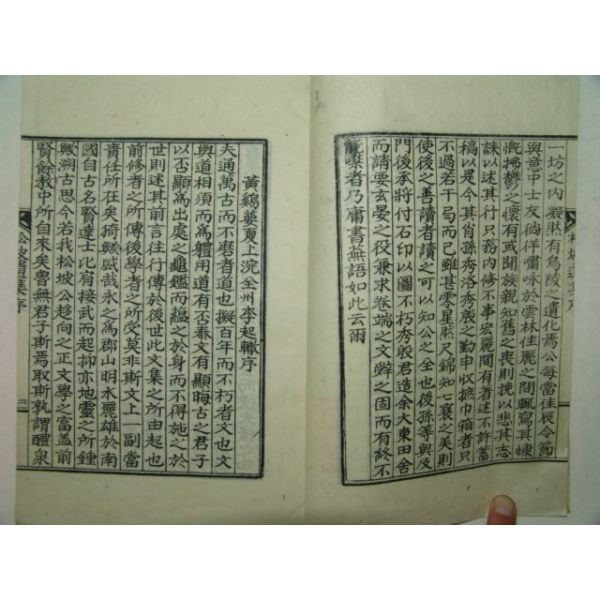 一坊之內藹然有鳥陵之遺化焉公每當佳辰令節
與章中士友徜徉嘯咏於雲林佳麗之間輒寫其慷
慨拂鬱之懷有或聞族親知舊之喪則挽以悲其志
誄以述其行只務內修不事宏麗間有者述不許蓄
稿以是今其肖孫秀洛秀殷之勤申收摭巾箱者只
不過若干弓而已雖甚零星然尺錦知七襄之美則
使後之善讀者讀之可以知公之全也後孫等與及
門後承將付石印以圖不朽秀殷君造余大東田舍
而請要玄晏之役兼求卷端之文辤之固而有終不
能槩者乃庸書蕪語如此云爾
黃鷄蕤夏上浣全州李起轍序
夫通萬古而不磨者道也擬百年而不朽者文也文
與道相須而爲體用道有否泰文有顯晦古之君子
以否顯爲出處之龜鑑而蘊之於身而不得施之於
世則述其前言往行傳於後世此文集之所由起也
前修者之所傳後學者之所受莫非斯文上一副當
責任所在矣猗歟盛哉永之爲郡山明水麗雄於南
國自古名賢達士比肩接武而起抑亦地靈之所鍾
歟溯古思今若我松坡公趍向之正文學之富蓋前
賢餘敎中所自來矣曾無君子斯焉取斯孰謂醴泉
松坡遺集序
二